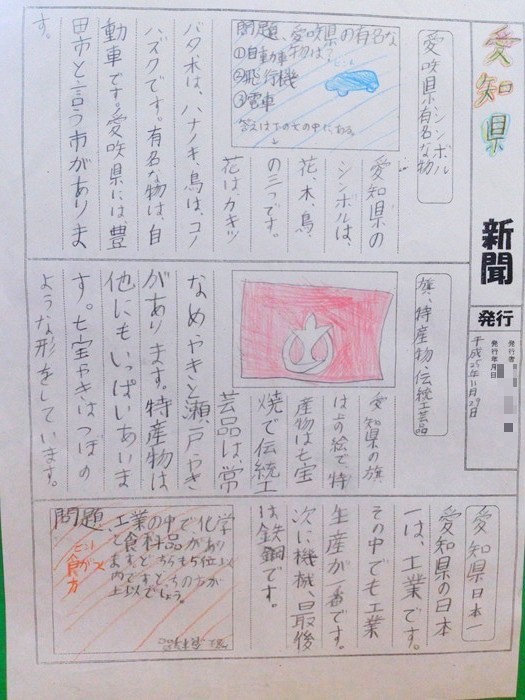 愛知県
新聞
発行
発行者
発行年月日
平成25年11月29日
愛知県、シンボル
有名な物
問題、愛知県の有名な
物は?
①自動車
②飛行機
③電車
答えは下の文の中にある。
愛知県の
シンボルは、
花、木、鳥、
の三つです。
花は、カキツ
バタ木は、ハナノキ、鳥は、コノ
ハズクです。有名な物は、自
動車です。愛知県には、豊
田市と言う市がありま
す。
旗、特産物、伝統工芸品
愛知県の旗
は上の絵で特
産物は七宝
焼で伝統工
芸品は、常
なめやきと瀬戸やき
があります。特産物は
他にもいっぱいあいま
す。七宝やきはつぼの
ような形をしています。
愛知県日本一
愛知県の日本
一は、工業です。
その中でも工業
生産が一番です。
次に機械、最後
は鉄鋼です。
問題、工業の中で化学
と食料品があり
ます。どちらも5位以
内ですどちらの方が
上以でしょう。
ヒント
食が
方